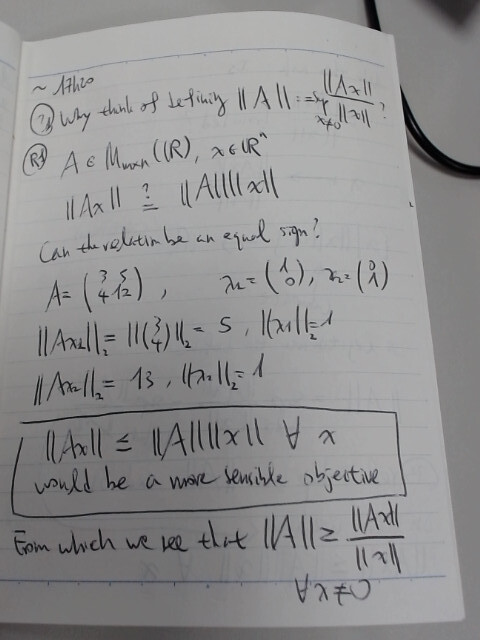 ~ 17h20
Q1 Why think of defining ||A|| := sup x≠0 ||Ax|| / ||x|| ?
R1 A ∈ Mmxn(ℝ), x ∈ ℝⁿ
||Ax|| ?= ||A|| ||x||
Can the relation be an equal sign?
A = (3 5 4 12), x1 = (1 0), x2 = (0 1)
||Ax1||2 = ||(3 4)||2 = 5, ||x1||2 = 1
||Ax2||2 = 13, ||x2||2 = 1
||Ax|| ≤ ||A|| ||x|| ∀ x
would be a more sensible objective
From which we see that ||A|| ≥ ||Ax|| / ||x||
∀ x ≠ 0